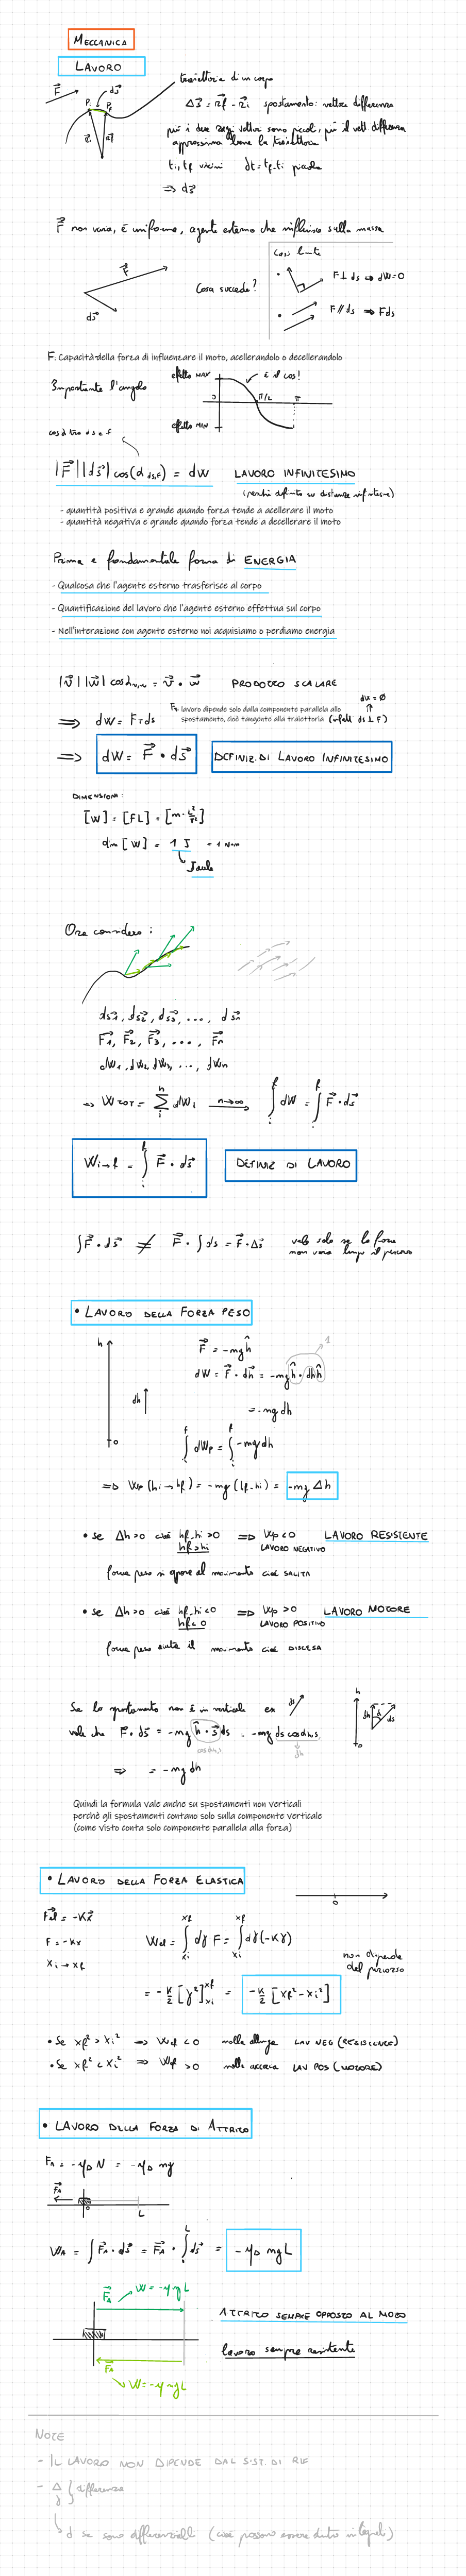 MECCANICA
LAVORO
traiettoria di un corpo
F ds
Pi Pf
ri rf
Δs = rf - ri spostamento: vettore differenza
più i due raggi vettori sono piccoli, più il vett differenza
approssima bene la traiettoria
ti, tf vicini dt = tf-ti piccolo
⇒ ds
F non varia, è uniforme, agente esterno che influisce sulla massa
Casi limite
F
ds
Cosa succede?
F ⊥ ds ⇒ dW=0
F // ds ⇒ Fds
F. Capacità della forza di influenzare il moto, acellerandolo o decellerandolo
Importante l'angolo
effetto MAX
È il cos!
0 π/2 π
effetto MIN
cos α tra ds e f
|F||ds| cos(α ds,F) = dW LAVORO INFINITESIMO
(perché definito su distanze infinitesime)
- quantità positiva e grande quando forza tende a acellerare il moto
- quantità negativa e grande quando forza tende a decellerare il moto
Prima e fondamentale forma di ENERGIA
- Qualcosa che l'agente esterno trasferisce al corpo
- Quantificazione del lavoro che l'agente esterno effettua sul corpo
- Nell'interazione con agente esterno noi acquisiamo o perdiamo energia
|v||w| cos αv,w = v • w PRODOTTO SCALARE
dW = Ø
⇒ dW = FT ds
FT. lavoro dipende solo dalla componente parallela allo
spostamento, cioè tangente alla traiettoria (infatti ds ⊥ F)
⇒ dW = F • ds DEFINIZ. DI LAVORO INFINITESIMO
DIMENSIONI:
[W] = [FL] = [m · L²/T²]
dim [W] = 1 J = 1 N·m
Joule
Ora considero:
ds1, ds2, ds3, ..., dsn
F1, F2, F3, ..., Fn
dW1, dW2, dW3, ..., dWn
⇒ WTOT = Σ dWi n→∞ ∫ dW = ∫ F • ds
Wi→f = ∫ F • ds DEFINIZ DI LAVORO
∫F • ds ≠ F • ∫ds = F • Δs vale solo se la forza
non varia lungo il percorso
• LAVORO DELLA FORZA PESO
h
F = -mgh
1
dW = F • dh = -mgh • dhh
dh
= -mg dh
0
∫ dWp = ∫ -mg dh
⇒ Wp (hi → hf) = -mg (hf-hi) = -mg Δh
• Se Δh>0 cioè hf-hi >0 ⇒ Wp<0 LAVORO RESISTENTE
hf>hi LAVORO NEGATIVO
forza peso si oppone al movimento cioè SALITA
• Se Δh>0 cioè hf-hi<0 ⇒ Wp>0 LAVORO MOTORE
hf<0 LAVORO POSITIVO
forza peso aiuta il movimento cioè DISCESA
Se lo spostamento non è in verticale ex ds
vale che F • ds = -mg h • s ds = -mg ds cosαh,s
cosαh,s dh
h
dh α ds
0
⇒ = -mg dh
Quindi la formula vale anche su spostamenti non verticali
perchè gli spostamenti contano solo sulla componente verticale
(come visto conta solo componente parallela alla forza)
• LAVORO DELLA FORZA ELASTICA
0
Fel = -Kx
F = -Kx
xi → xf
Wel = ∫ dγ F = ∫ dγ(-Kγ)
non dipende
dal percorso
= -K/2 [γ²] = -K/2 [xf² - xi²]
• Se xf² > xi² ⇒ Wel < 0 molla allunga LAV NEG (RESISTENTE)
• Se xf² < xi² ⇒ Wel > 0 molla accorcia LAV POS (MOTORE)
• LAVORO DELLA FORZA DI ATTRITO
FA = -μD N = -μD mg
FA
0 L
WA = ∫ FA • ds = FA • ∫ ds = -μD mg L
FA W=-μmgL
ATTRITO SEMPRE OPPOSTO AL MOTO
lavoro sempre resistente
FA
W=-μmgL
NOTE
- IL LAVORO NON DIPENDE DAL SIST. DI RIF
- Δ
differenze
d se sono differenziali (cioè possono essere dentro integrali)